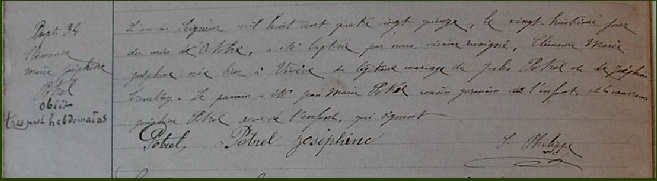 Bapt. 84
Clémence
marie joséphine
Potrel
obiit
tres post hebdomadas
L'an du Seigneur mil huit cent quatre vingt quinze, le vingt huitième jour
du mois de Octobre, a été baptisée par nous, vicaire soussigné, Clémence Marie
joséphine née hier à du légitime mariage de Jules Potrel et de joséphine
Le parrain a été jean Marie Potrel cousin germain de l'enfant, et la marraine
joséphine Potrel soeur de l'enfant, qui signent
Potrel Potrel Joséphine